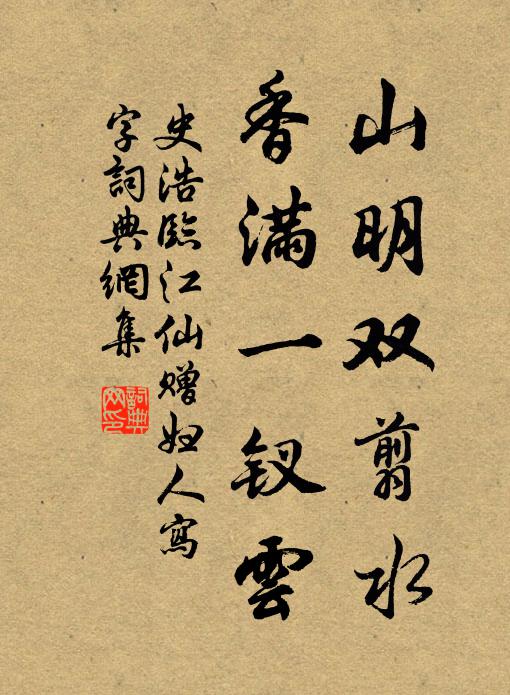 山明双剪水
香满一钗雲
史浩臨江仙赠妇人寫
字詞典網集
詞典
网印